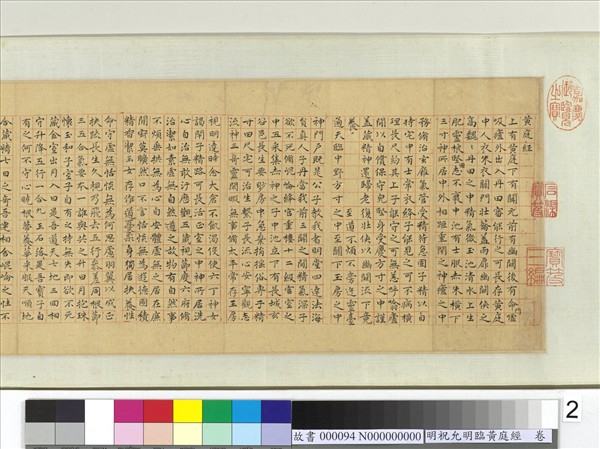 黃庭經
上有黃庭下有關元前有幽闕後有命噓
吸廬外出入丹田審能行之可長存黃庭
中人衣朱衣關門壯籥蓋兩扉幽闕俠之
高巍巍丹田之中精氣微玉池清水上生
肥靈根堅志不衰中池有士服赤朱橫下
三寸神所居中外相距重閉之神廬之中
務脩治玄膺氣管受精符急固子精以自
持宅中有士常衣絳子能見之可不病橫
理長尺約其上子能守之可無恙呼噏廬
間以自償保守完堅身受慶方寸之中謹
蓋藏精神還歸老復壯俠以幽闕流下竟
養 至道不煩不旁迕靈臺
通天臨中野方寸之中至關下玉房之中
神門戶既是公子教我者明堂四達法海
員真人子丹當我前三關之間精氣深子
欲不死脩崑崙絳宮重樓十二級宮室之
中五采集赤神之子中池立下有長城玄
谷邑長生要眇房中急棄捐搖俗專子精
寸田尺宅可治生繫子長流心安寧觀志
流神三奇靈閒暇無事脩太平常存玉房
視明達時念大倉不飢渴役使六丁神女
謁閉子精路可長活正室之中神所居洗
心自治無敢汙歷觀五藏視節度六府脩
治潔如素虛無自然道之故物有自然事
不煩垂拱無為心自安體虛無之居在廉
間寂莫曠然口不言恬惔無為遊德園積
精香潔玉女存作道憂柔身獨居扶養性
命守虛無恬惔無為何思慮羽翼以成正
扶疏長生久視乃飛去五行參差同根節
三五合氣要本一誰與共之升日月抱珠
懷玉和子室子自有之持無失即欲不死
藏金室出月入日是吾道天七地三回相
守升降五行一合九玉石落落是吾寶子自
有之何不守心曉根蔕養華采服天順地
合藏精七日之奇吾連相合崑崙之性不
嘉慶御覽之寶
石渠寶笈
寶笈三編
2
故書 000094 N000000000 明祝允明臨黃庭經 卷